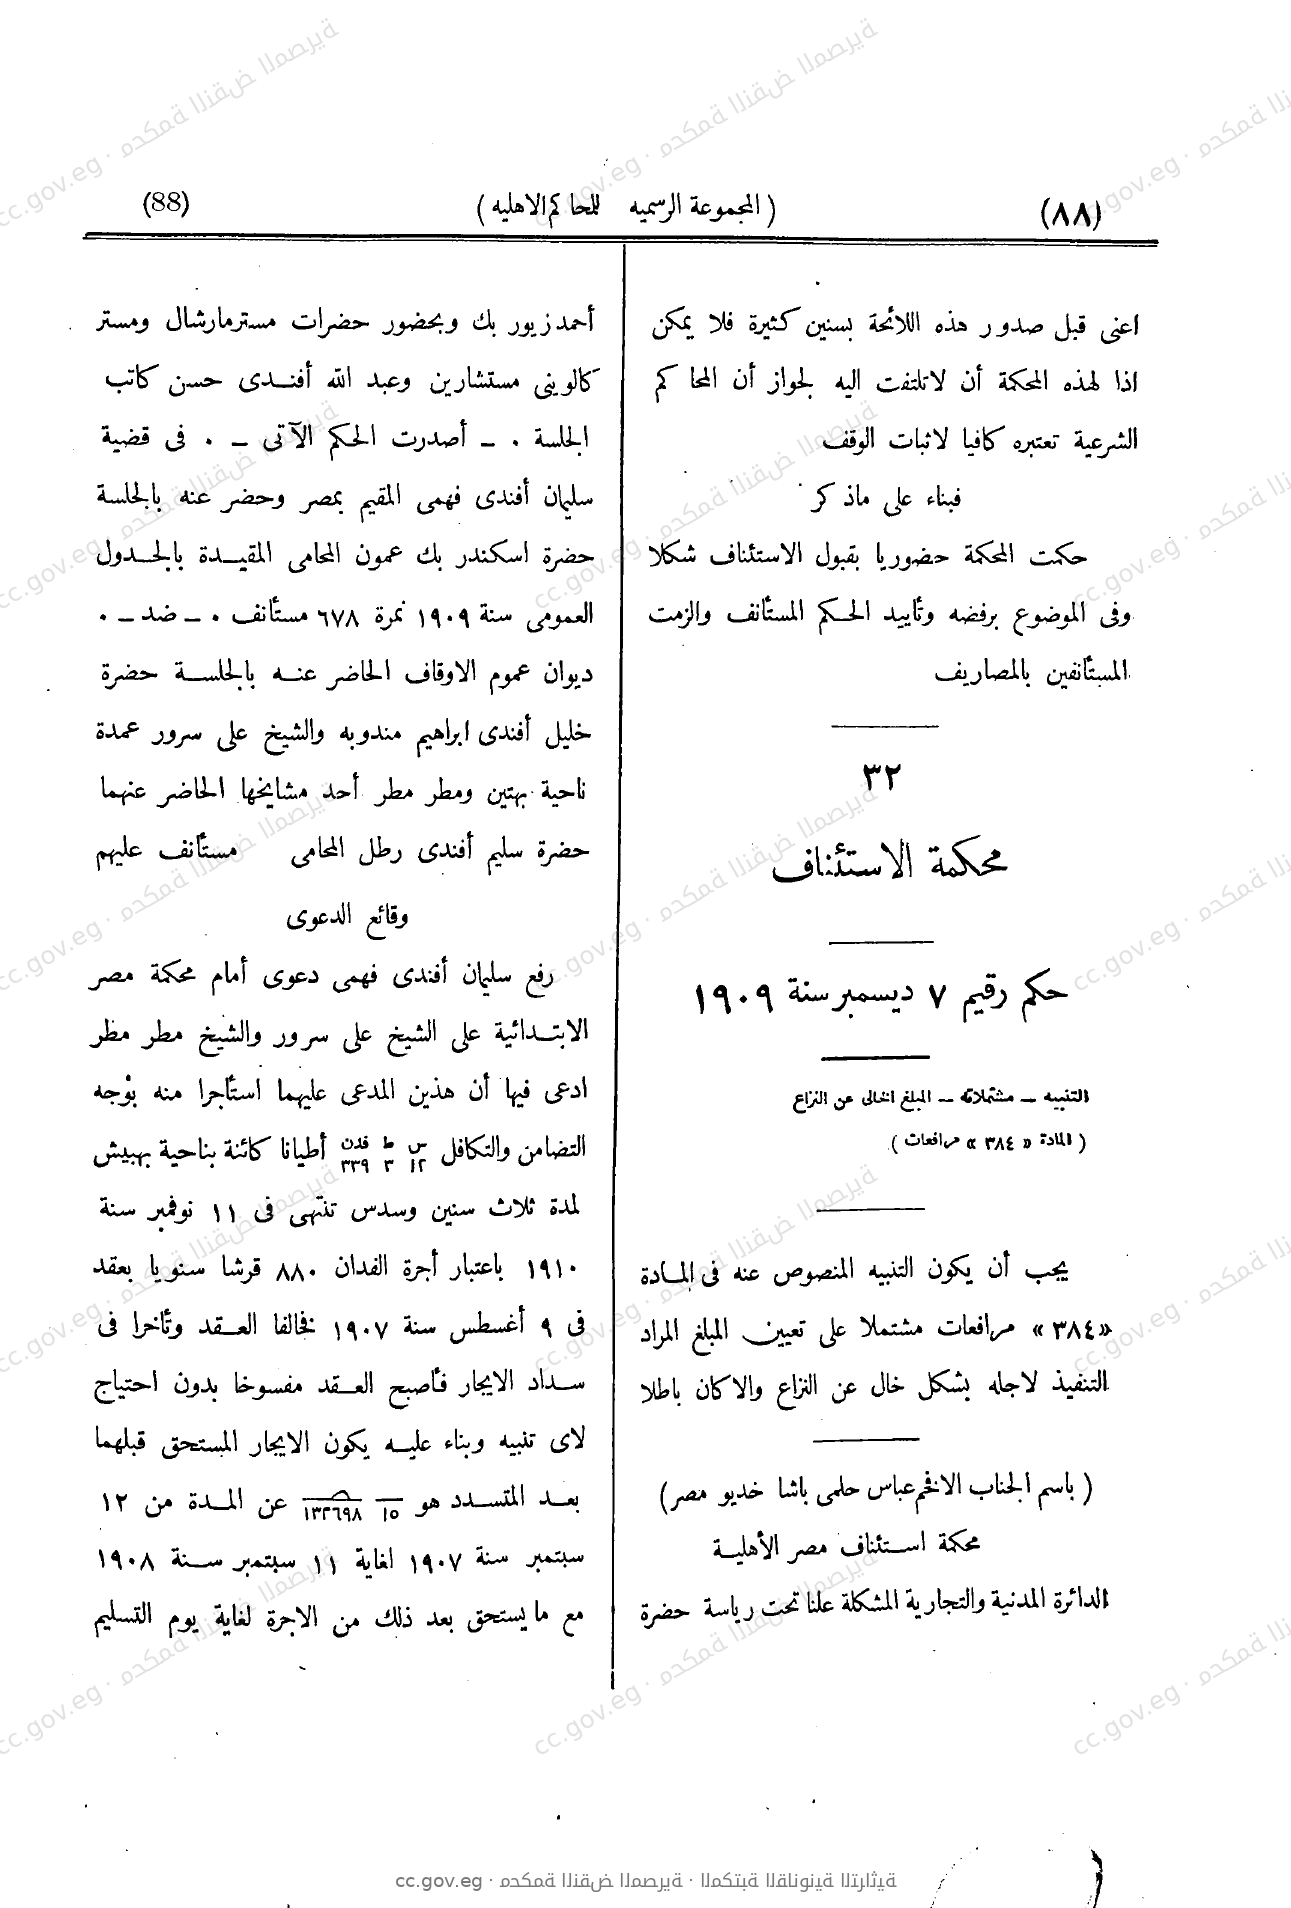 (٨٨)
( المجموعة الرسميه للمحاكم الاهليه )
(88)
اعنى قبل صدور هذه اللائحة بسنين كثيرة فلا يمكن
اذا لهذه المحكمة أن لا تلتفت اليه لجواز أن المحاكم
الشرعية تعتبره كافيا لاثبات الوقف
فبناء على ماذكر
حكمت المحكمة حضوريا بقبول الاستئناف شكلا
وفى الموضوع برفضه وتأييد الحكم المستأنف والزمت
المستأنفين بالمصاريف
٣٢
محكمة الاستئناف
حكم رقيم ٧ ديسمبر سنة ١٩٠٩
التنبيه — مشتملاته — المبلغ الخالى عن النزاع
( المادة « ٣٨٤ » مرافعات )
يجب أن يكون التنبيه المنصوص عنه فى المادة
«٣٨٤» مرافعات مشتملا على تعيين المبلغ المراد
التنفيذ لاجله بشكل خال عن النزاع والا كان باطلا
( باسم الجناب الافخم عباس حلمى باشا خديو مصر )
محكمة استئناف مصر الأهلية
الدائرة المدنية والتجارية المشكلة علنا تحت رياسة حضرة
أحمد زيور بك وبحضور حضرات مستر مارشال ومستر
كالوينى مستشارين وعبد الله أفندى حسن كاتب
الجلسة . — أصدرت الحكم الآتى — . فى قضية
سليمان أفندى فهمى المقيم بمصر وحضر عنه بالجلسة
حضرة اسكندر بك عمون المحامى المقيدة بالجدول
العمومى سنة ١٩٠٩ نمرة ٦٧٨ مستأنف . — ضد — .
ديوان عموم الاوقاف الحاضر عنه بالجلسة حضرة
خليل أفندى ابراهيم مندوبه والشيخ على سرور عمدة
ناحية بهتين ومطر مطر أحد مشايخها الحاضر عنهما
حضرة سليم أفندى رطل المحامى مستأنف عليهم
وقائع الدعوى
رفع سليمان أفندى فهمى دعوى أمام محكمة مصر
الابتدائية على الشيخ على سرور والشيخ مطر مطر
ادعى فيها أن هذين المدعى عليهما استأجرا منه بوجه
التضامن والتكافل س ١٢ ط ٣ فدن ٣٣٩ أطيانا كائنة بناحية بهبيش
لمدة ثلاث سنين وسدس تنتهى فى ١١ نوفمبر سنة
١٩١٠ باعتبار أجرة الفدان ٨٨٠ قرشا سنويا بعقد
فى ٩ أغسطس سنة ١٩٠٧ فخالفا العقد وتأخرا فى
سداد الايجار فأصبح العقد مفسوخا بدون احتياج
لاى تنبيه وبناء عليه يكون الايجار المستحق قبلهما
بعد المتسدد هو ١٥ ١٣٢٦٩٨ عن المدة من ١٢
سبتمبر سنة ١٩٠٧ لغاية ١١ سبتمبر سنة ١٩٠٨
مع ما يستحق بعد ذلك من الاجرة لغاية يوم التسليم
cc.gov.eg · محكمة النقض المصرية · المكتبة القانونية التراثية